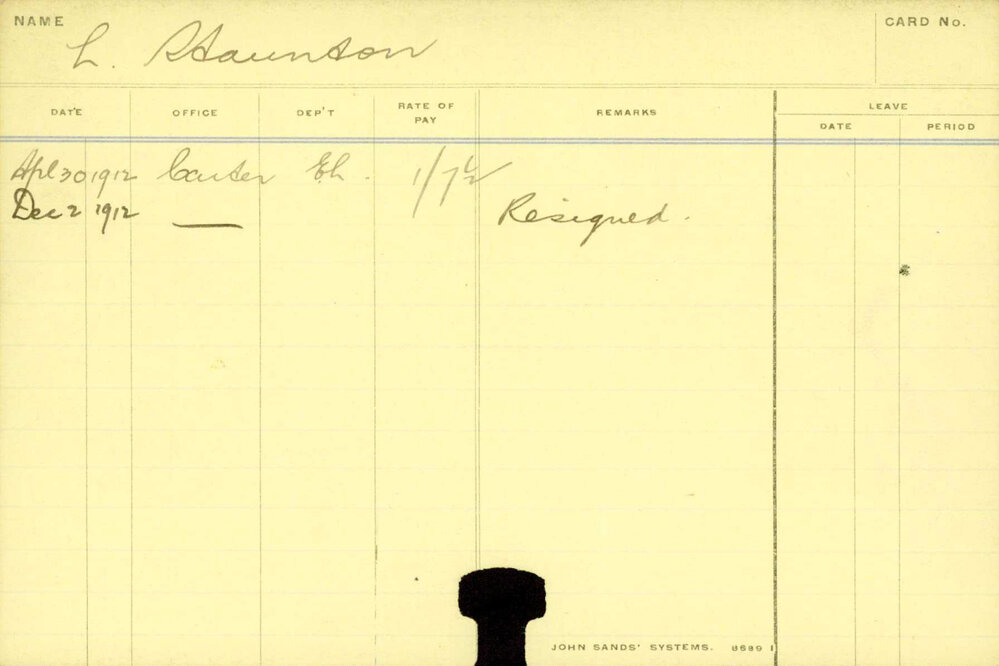 NAME L. Staunton CARD No.
DATE OFFICE DEP'T RATE OF PAY REMARKS LEAVE
DATE PERIOD
Apl 30 1912 Canter E.L. 1/7½
Dec 2 1912 — Resigned.
JOHN SANDS' SYSTEMS. 8689